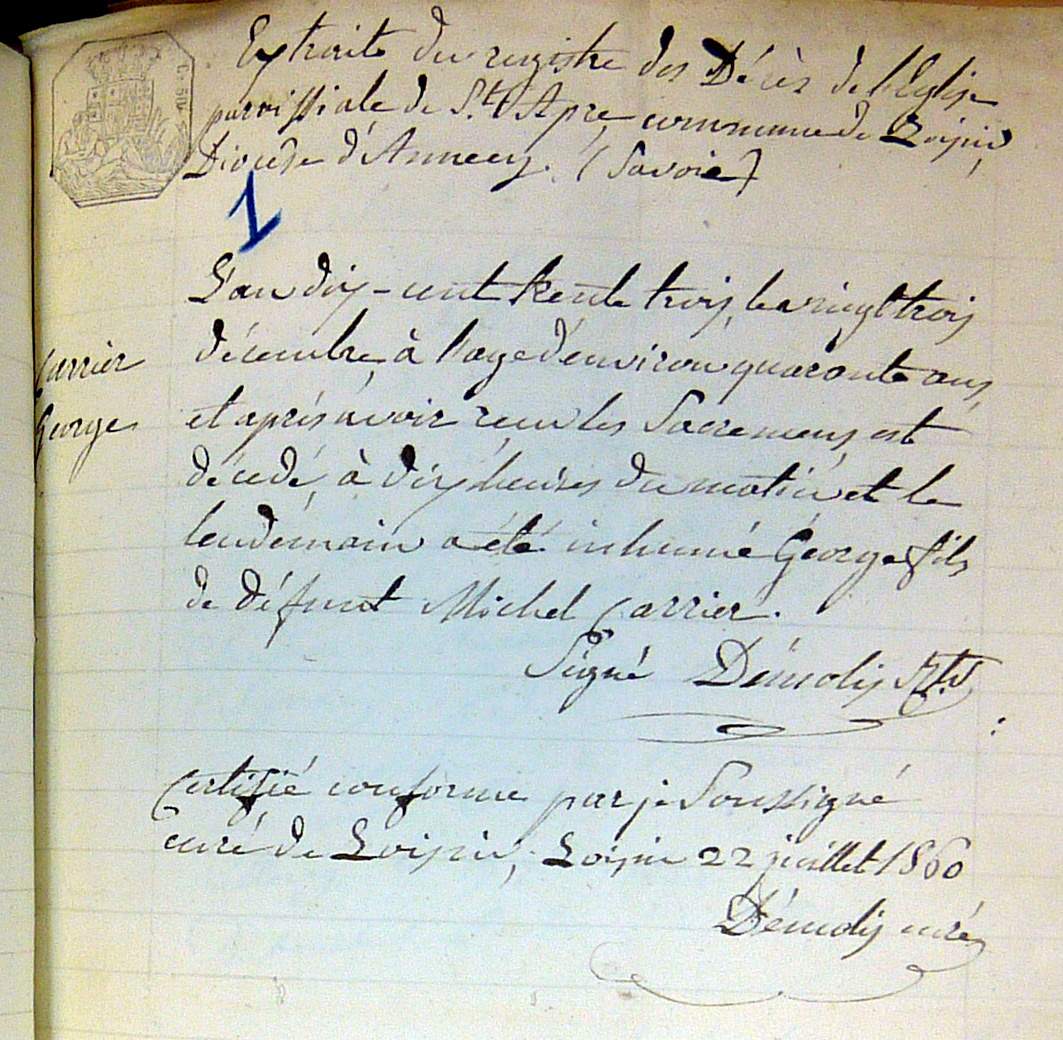 Extrait du registre des Décès de l'Eglise
paroissiale de St Apre commune de Loisin
Diocèse d'Annecy. (Savoie)
1
L'an dix-cent trente trois, le vingt trois
Carrier
George
décembre, à l'age d'environ quarante ans,
et après avoir recu les Sacremens, est
décédé, à dix heures du matin et le
lendemain a été inhumé George fils
de défunt Michel Carrier.
Signé Démolis
Certifié conforme par je Soussigné
curé de Loisin, Loisin 22 juillet 1860
Démolis curé